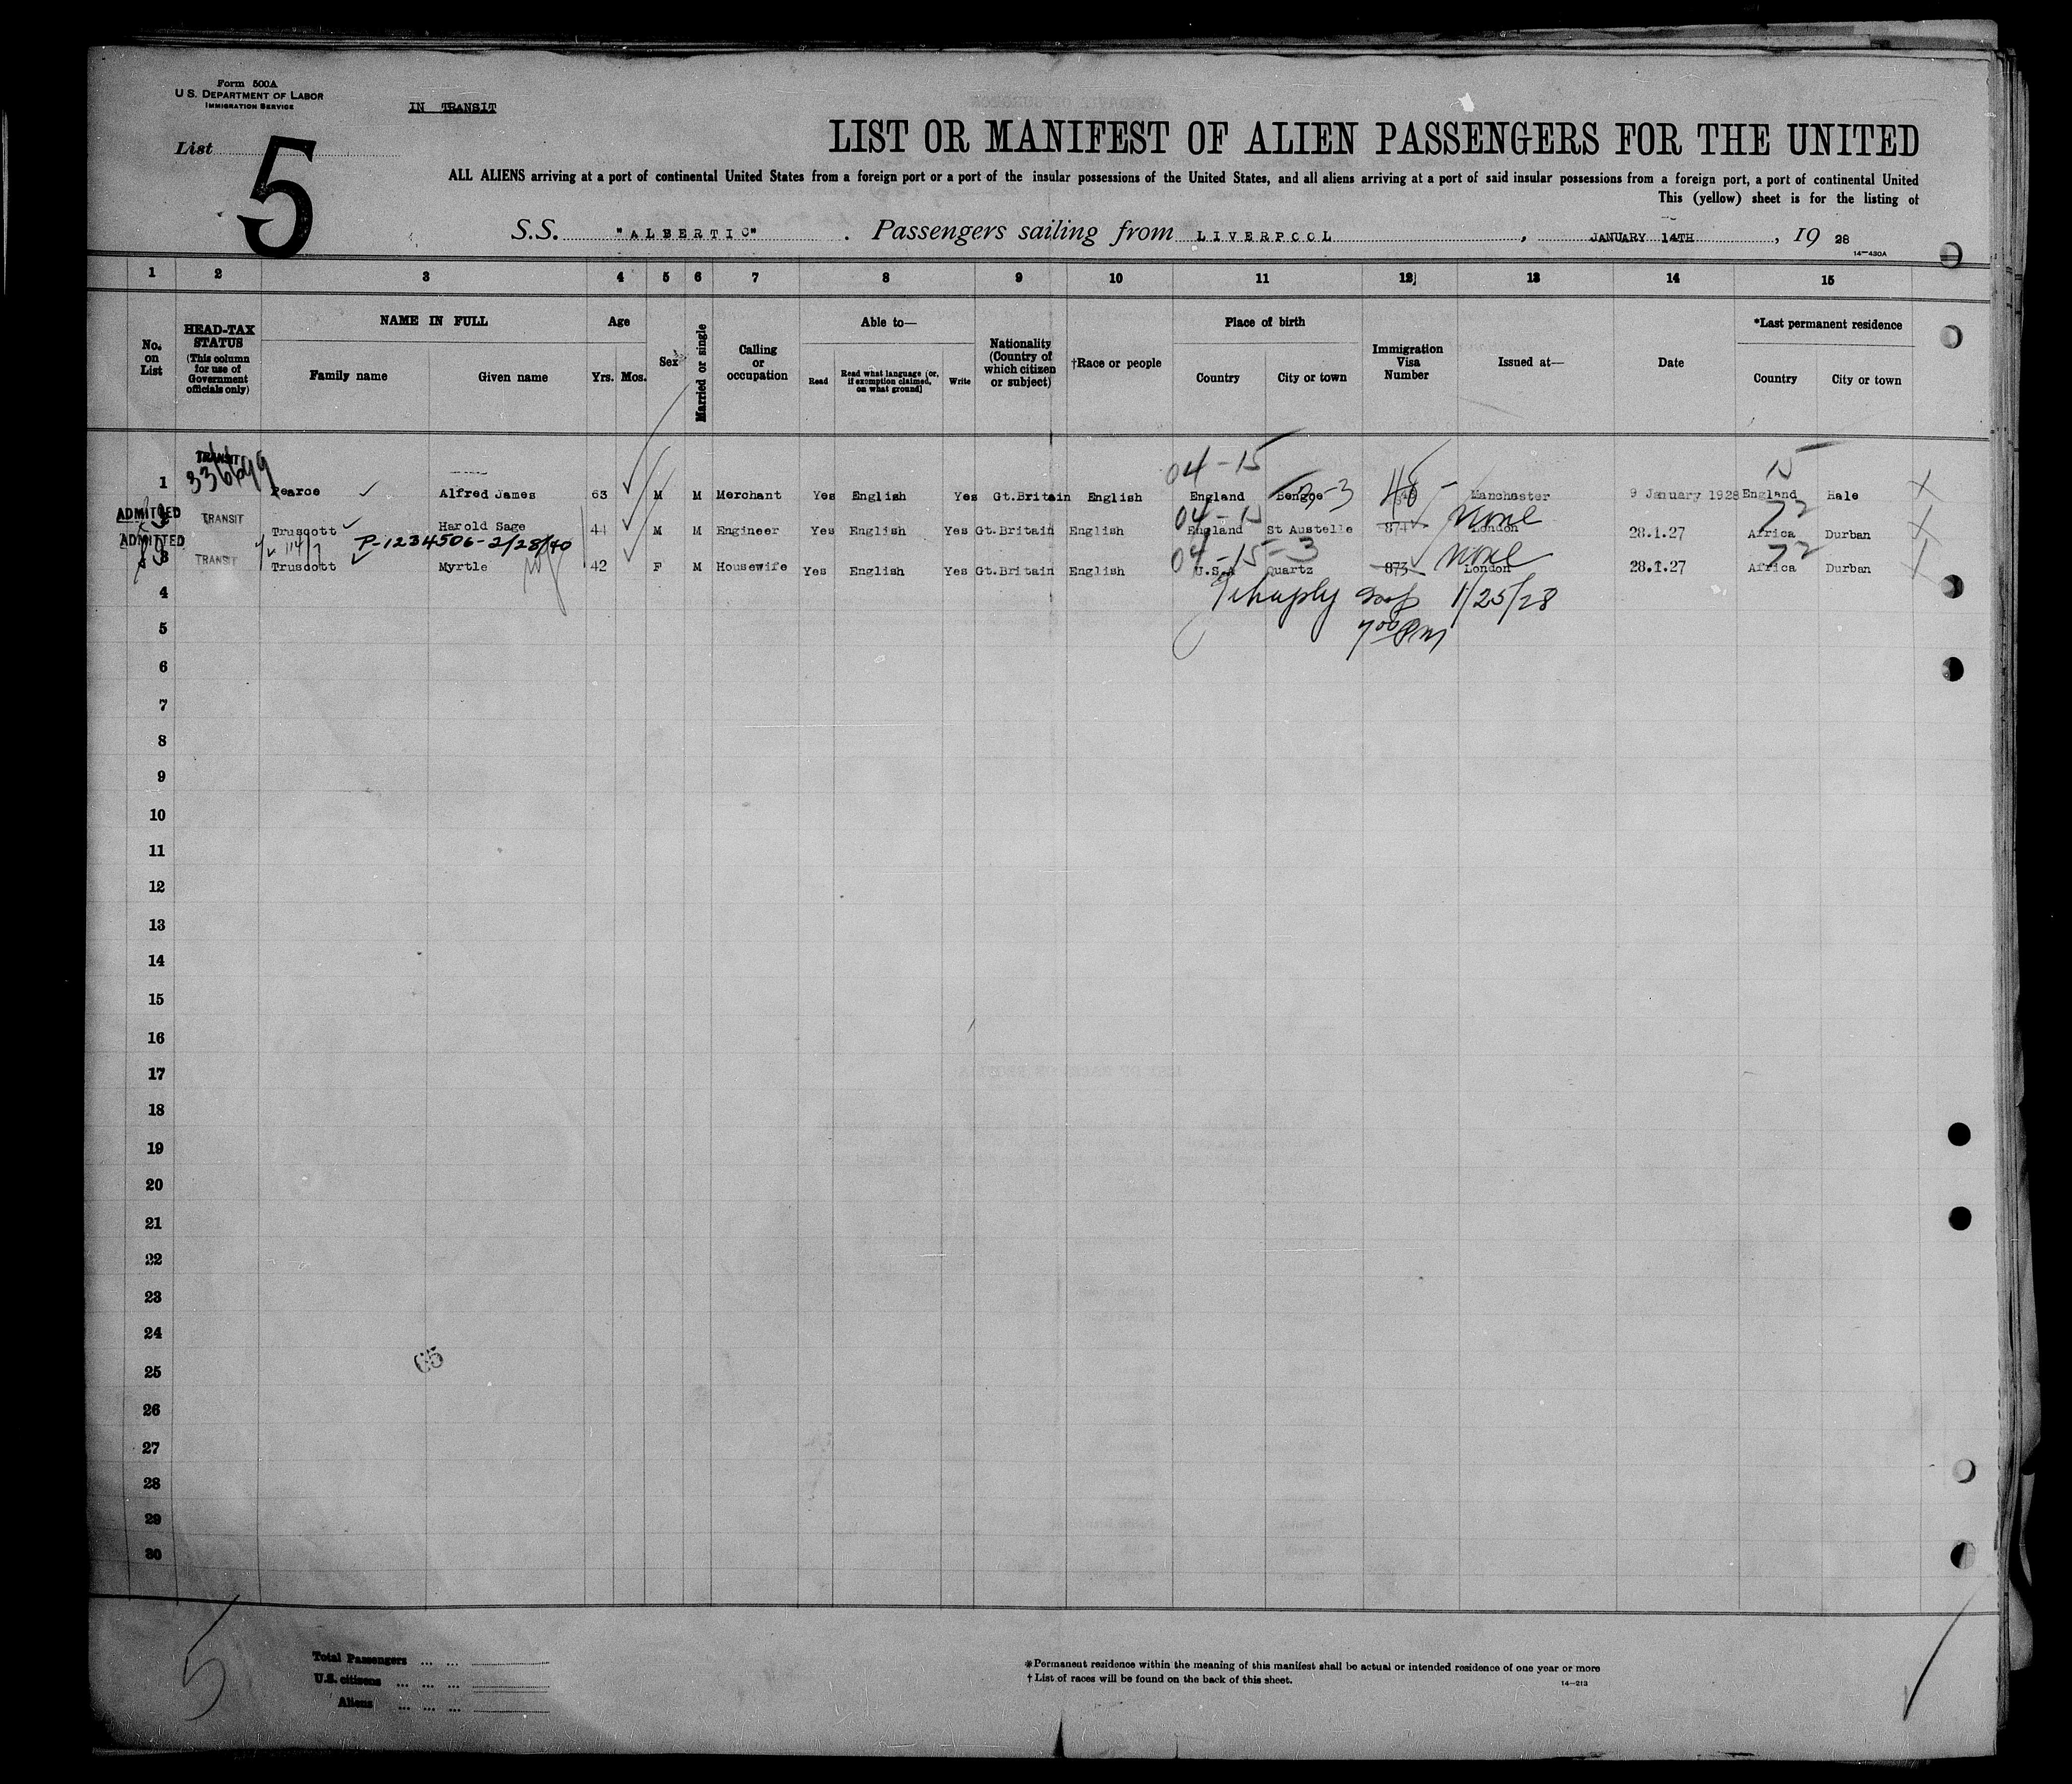 Form 500A
U.S. DEPARTMENT OF LABOR
IMMIGRATION SERVICE
IN TRANSIT
List 5
LIST OR MANIFEST OF ALIEN PASSENGERS FOR THE UNITED
ALL ALIENS arriving at a port of continental United States from a foreign port or a port of the insular possessions of the United States, and all aliens arriving at a port of said insular possessions from a foreign port, a port of continental United
This (yellow) sheet is for the listing of
S.S. "ALBERTIC". Passengers sailing from LIVERPOOL, JANUARY 14TH, 19 28
14—430A
1 2 3 4 5 6 7 8 9 10 11 12 13 14 15
No. on List
HEAD-TAX STATUS (This column for use of Government officials only)
NAME IN FULL
Family name Given name
Age
Yrs. Mos.
Sex
Married or single
Calling or occupation
Able to—
Read Read what language (or, if exemption claimed, on what ground) Write
Nationality (Country of which citizen or subject)
†Race or people
Place of birth
Country City or town
Immigration Visa Number
Issued at—
Date
*Last permanent residence
Country City or town
04-15 15
TRANSIT
336699
1 Pearce Alfred James 63 M M Merchant Yes English Yes Gt.Britain English England Bengoe 48 Manchester 9 January 1928 England Hale
ADMITTED
04-15 None 72
TRANSIT Truscott Harold Sage 44 M M Engineer Yes English Yes Gt.Britain English England St Austelle 874 London 28.1.27 Africa Durban
ADMITTED
P-1234506-2/28/40
04-15-3 None 72
3 TRANSIT Truscott Myrtle 42 F M Housewife Yes English Yes Gt.Britain English U.S.A Quartz 873 London 28.1.27 Africa Durban
4
1/25/28
5
7 00 PM
6
7
8
9
10
11
12
13
14
15
16
17
18
19
20
21
22
23
24
65
25
26
27
28
29
30
5
Total Passengers ... ...
U.S. citizens ... ... ...
Aliens ... ... ...
*Permanent residence within the meaning of this manifest shall be actual or intended residence of one year or more
†List of races will be found on the back of this sheet.
14—213